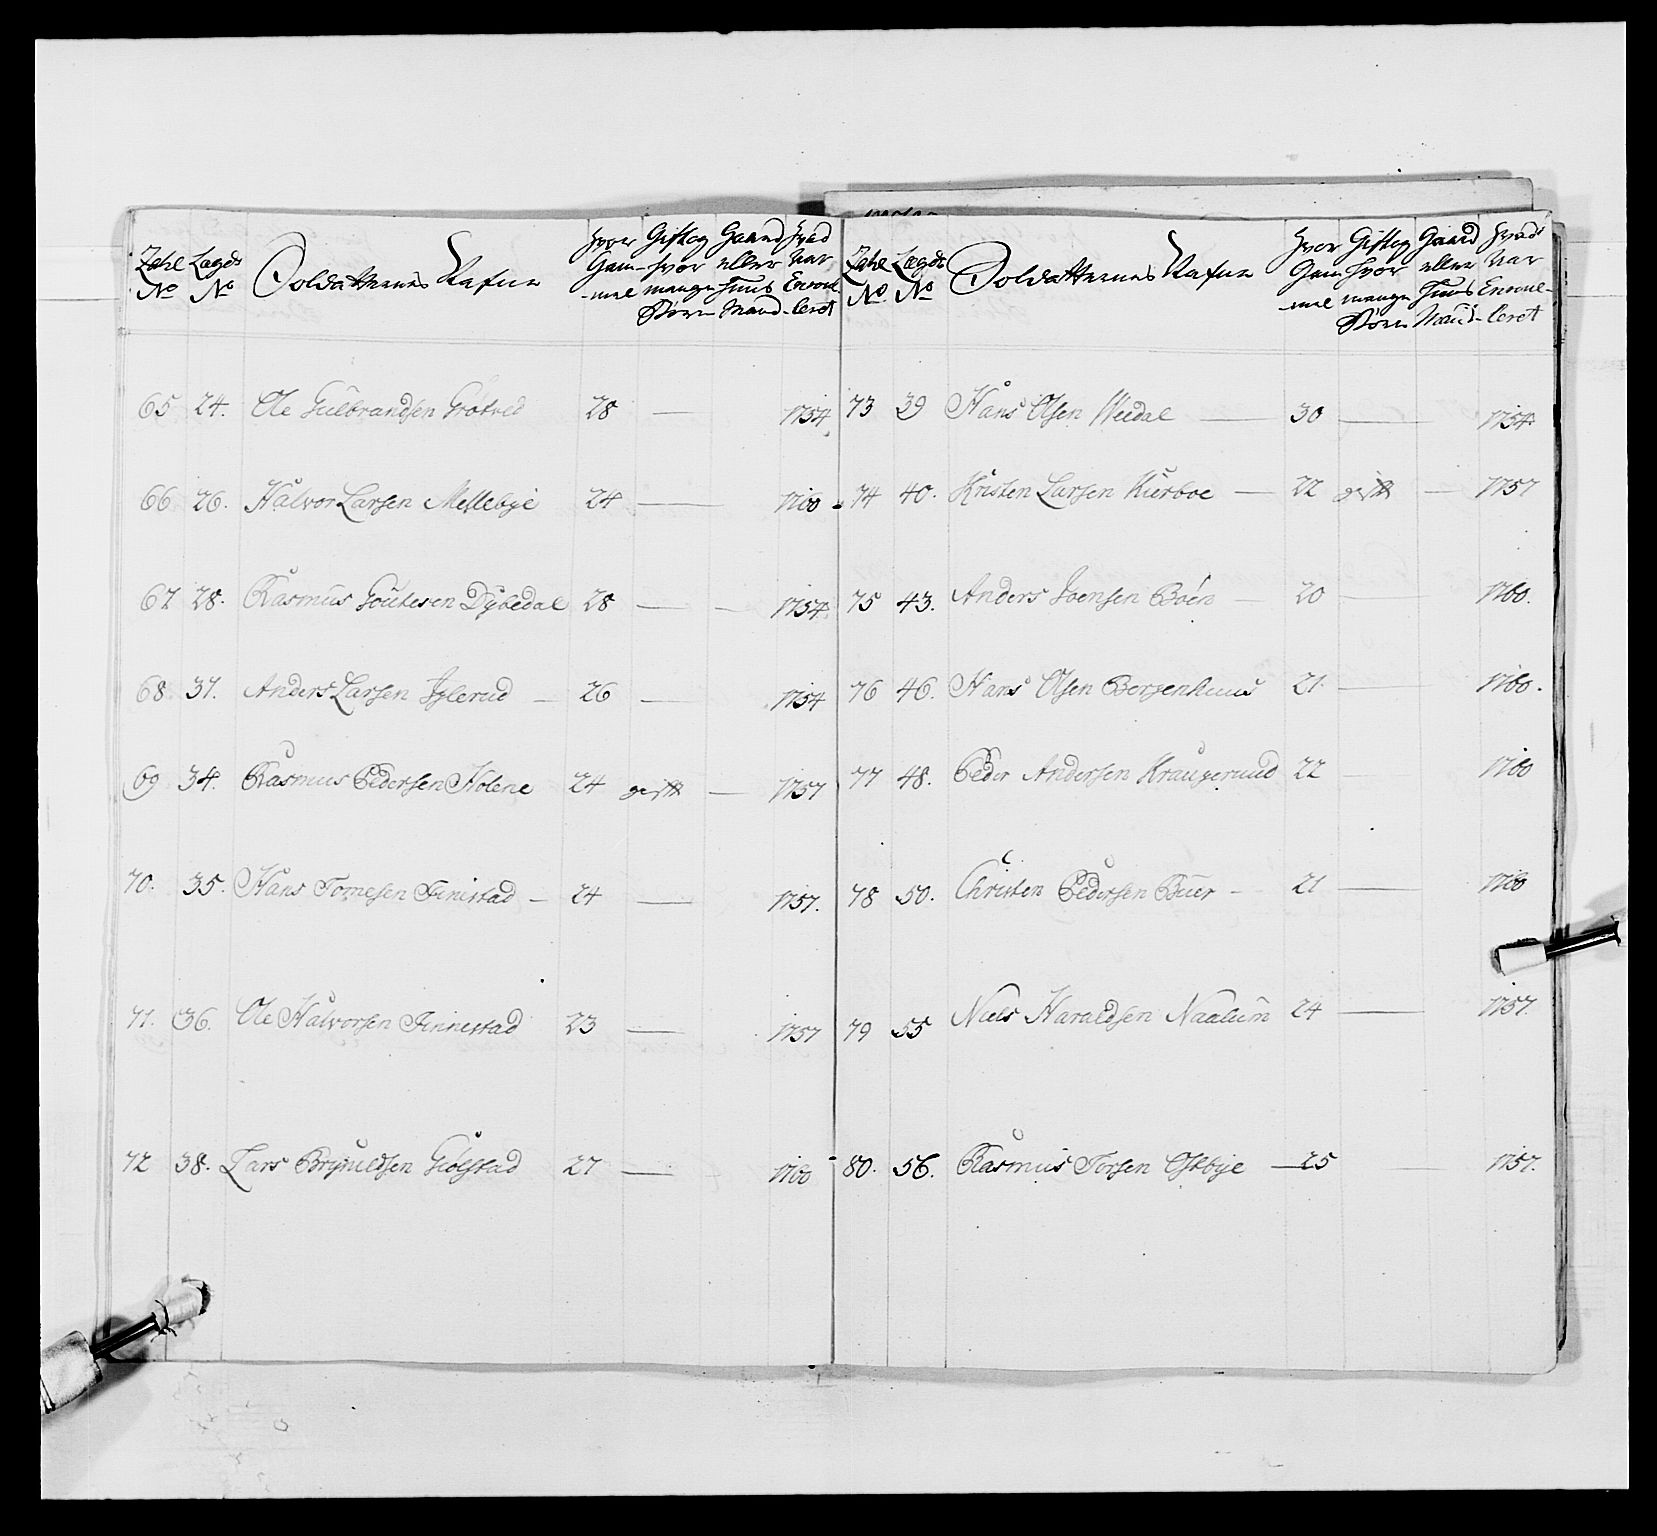 Zahl No
Lægds No
Soldatternes Nafne
Hvor Gam-mel
Gift og hvor mange Børn
Gaard eller Huus Mand
Hvad Aar Enroul-leret
65 24. Ole Gulbrandsen Grøtved 28 — 1754
66 26. Halvor Larsen Mellebye 24 — 1760
67 28. Rasmus Goutesen Dÿbedal 28 — — 1754
68 31. Anders Larsen Iglerud — 26 — 1754
69 34. Rasmus Pedersen Holene 24 gift — 1757
70. 35. Hans Tomesen Finistad — 24 — 1757.
71. 36. Ole Halvorsen Finnestad 23 — 1757
72 38. Lars Brÿnildsen Giølstad 27 — 1760
Zahl No
Lægds No
Soldatternes Nafne
Hvor Gam-mel
Gift og hvor mange Børn
Gaard eller Huus Mand-
Hvad Aar Enroul-leret
73 39 Hans Olsen Weedal — 30 — 1754
74 40. Kristen Larsen Kierboe — 22 gift — 1757
75 43. Anders Joensen Boén — 20 — 1760.
76 46. Hans Olsen Bergenhuus 21 — 1760.
77 48. Peder Andersen Kraugerund 22 1760
78 50. Christen Pedersen Buer - 21 — 1760
79 55 Niels Haraldsen Naalum 24 — 1757.
80. 56. Rasmus Torsen Ostbye — 25 1757.